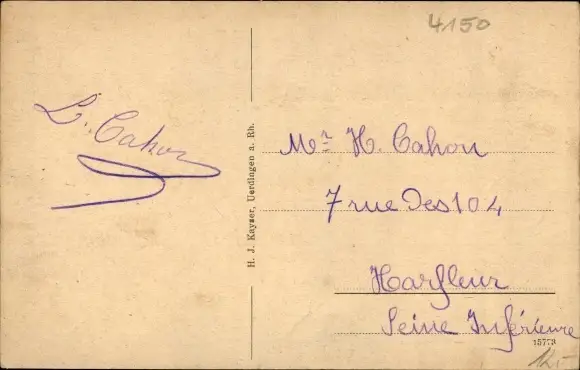 4150
L. Cahon
Mr H. Cahon
7 rue Des 104
Harfleur
Seine Inférieure
H. J. Kayser, Uerdingen a. Rh.
15773
12.-